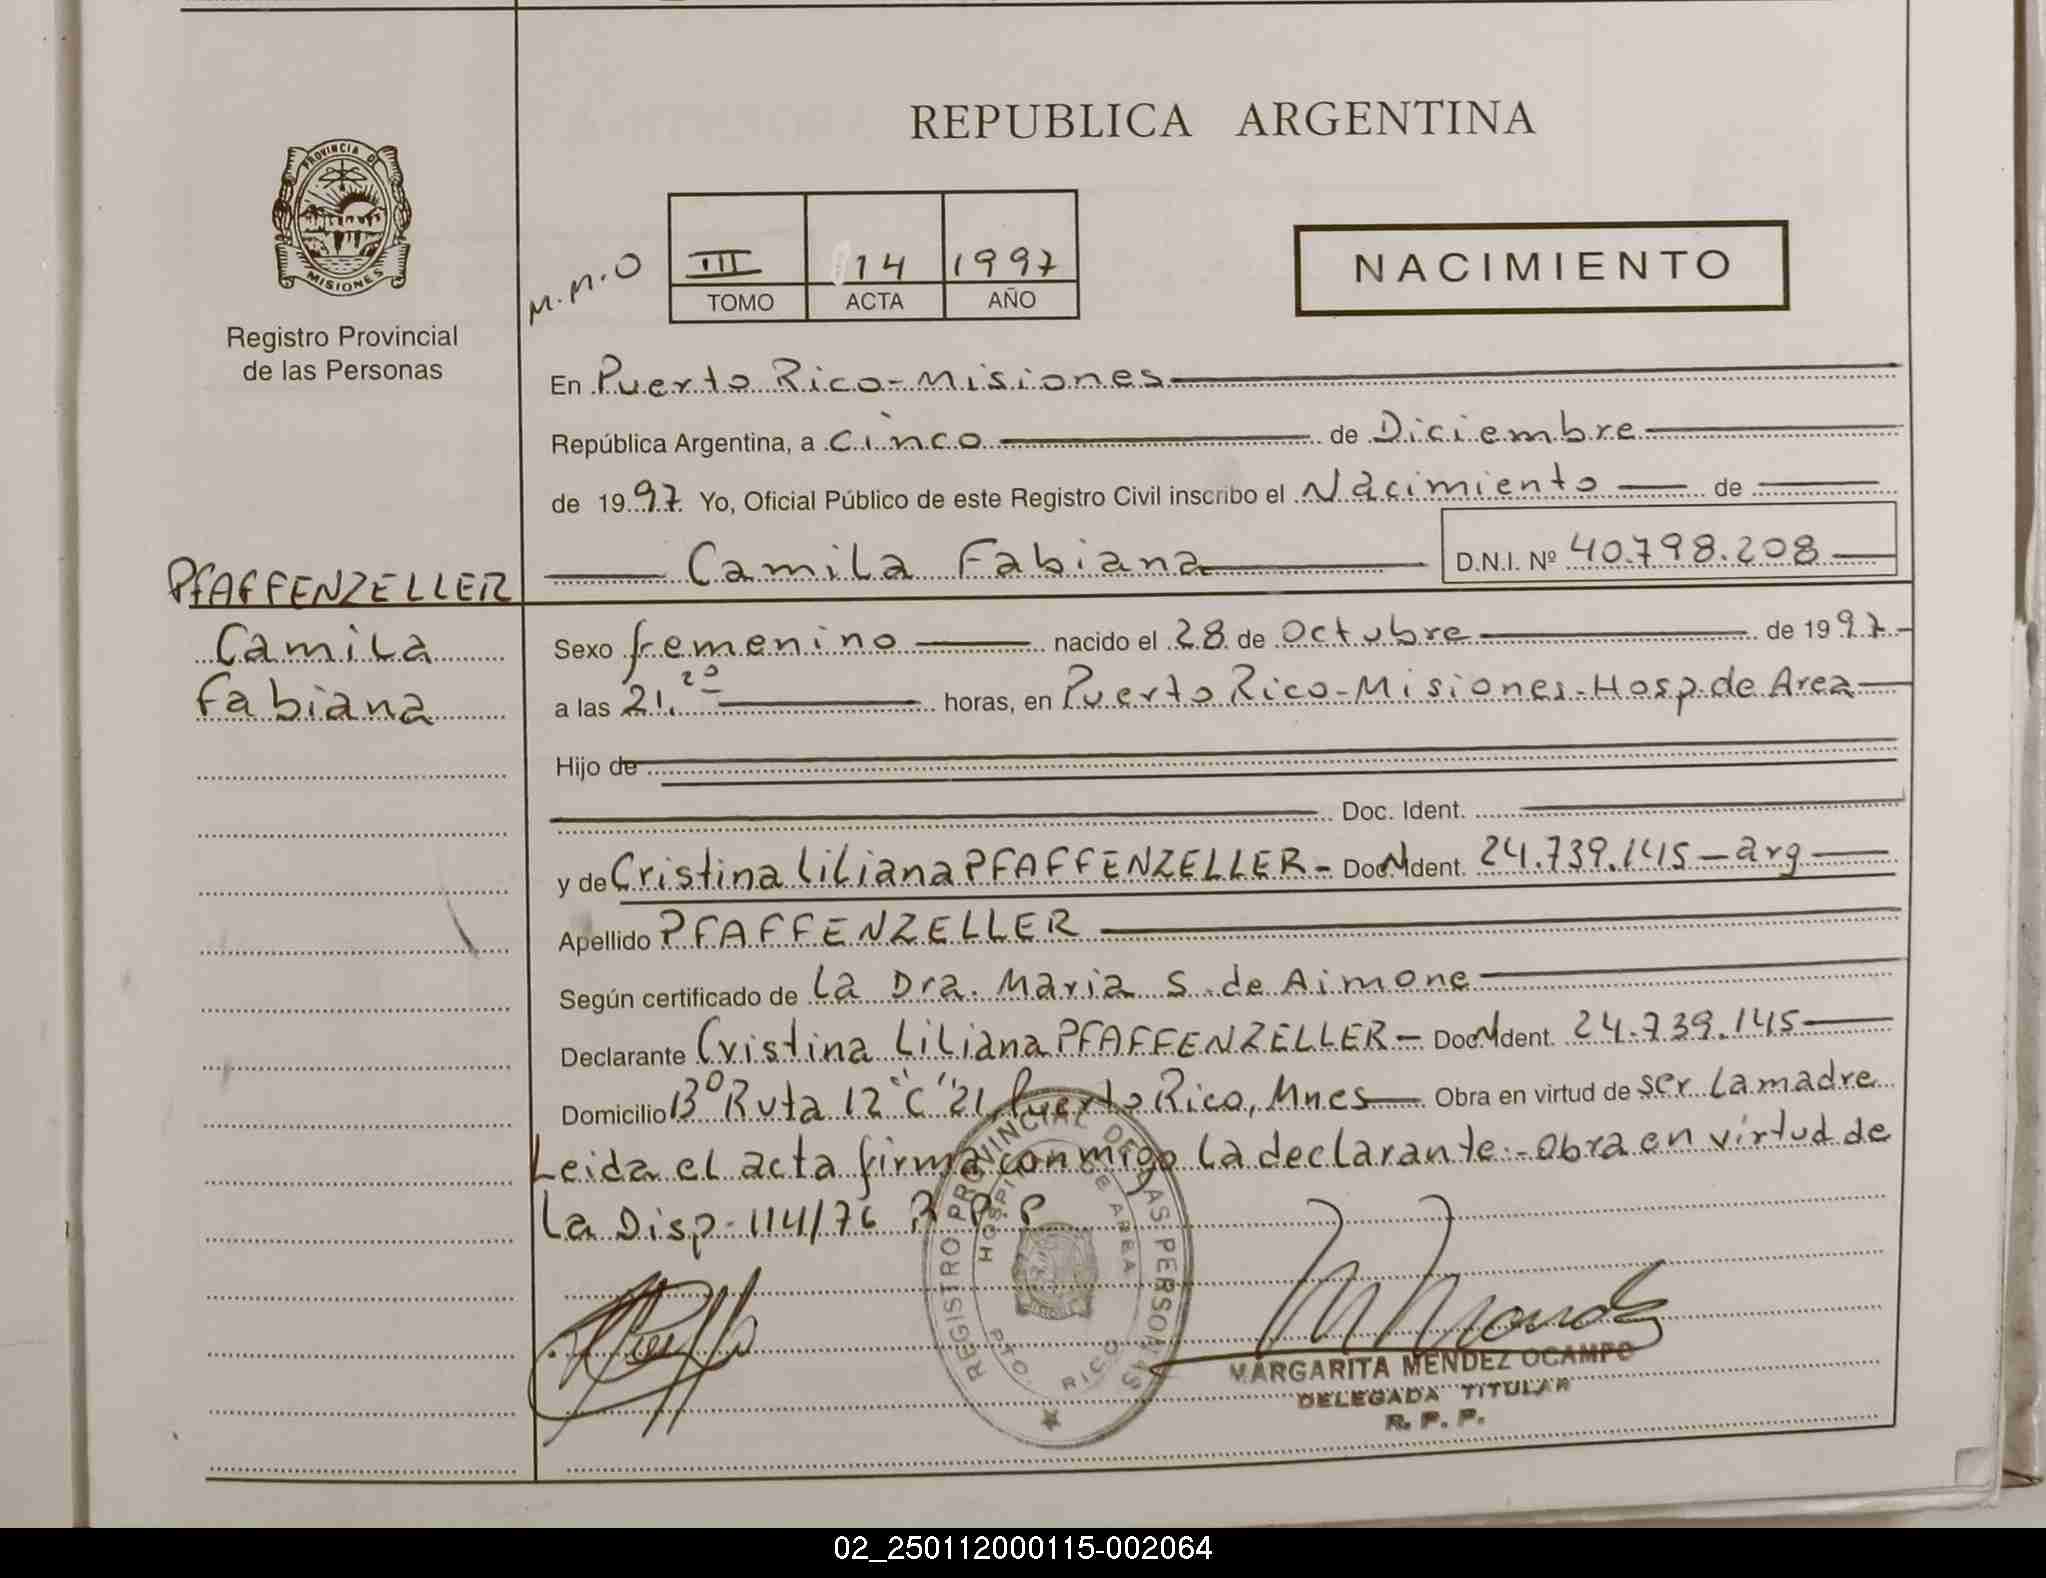 REPUBLICA ARGENTINA
PROVINCIA DE
MISIONES
Registro Provincial
de las Personas
M.M.O
III 14 1997
TOMO ACTA AÑO
NACIMIENTO
En Puerto Rico - Misiones
República Argentina, a cinco de Diciembre
de 1997 Yo, Oficial Público de este Registro Civil inscribo el Nacimiento de
Camila Fabiana D.N.I. Nº 40.798.208
PFAFFENZELLER
Camila
Fabiana
Sexo femenino nacido el 28 de Octubre de 1997
a las 21.20 horas, en Puerto Rico - Misiones - Hosp. de Area
Hijo de
Doc. Ident.
y de Cristina Liliana PFAFFENZELLER - Doc. Ident. 24.739.145 - arg
Apellido PFAFFENZELLER
Según certificado de la Dra. Maria S. de Aimone
Declarante Cristina Liliana PFAFFENZELLER - Doc. Ident. 24.739.145
Domicilio Bº Ruta 12 "C" 21, Puerto Rico, Mnes Obra en virtud de ser la madre
Leida el acta firma conmigo la declarante.- Obra en virtud de
la Disp. 114/76 R.P.P
REGISTRO PROVINCIAL DE LAS PERSONAS
HOSPITAL DE AREA
PTO. RICO
MARGARITA MENDEZ OCAMPO
DELEGADA TITULAR
R. P. P.
02_250112000115-002064